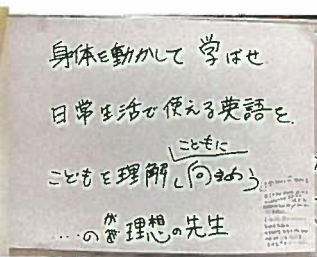 身体を動かして 学ばせ
日常生活で使える英語を
こどもに
こどもを理解し向きあう
....のが理想の先生